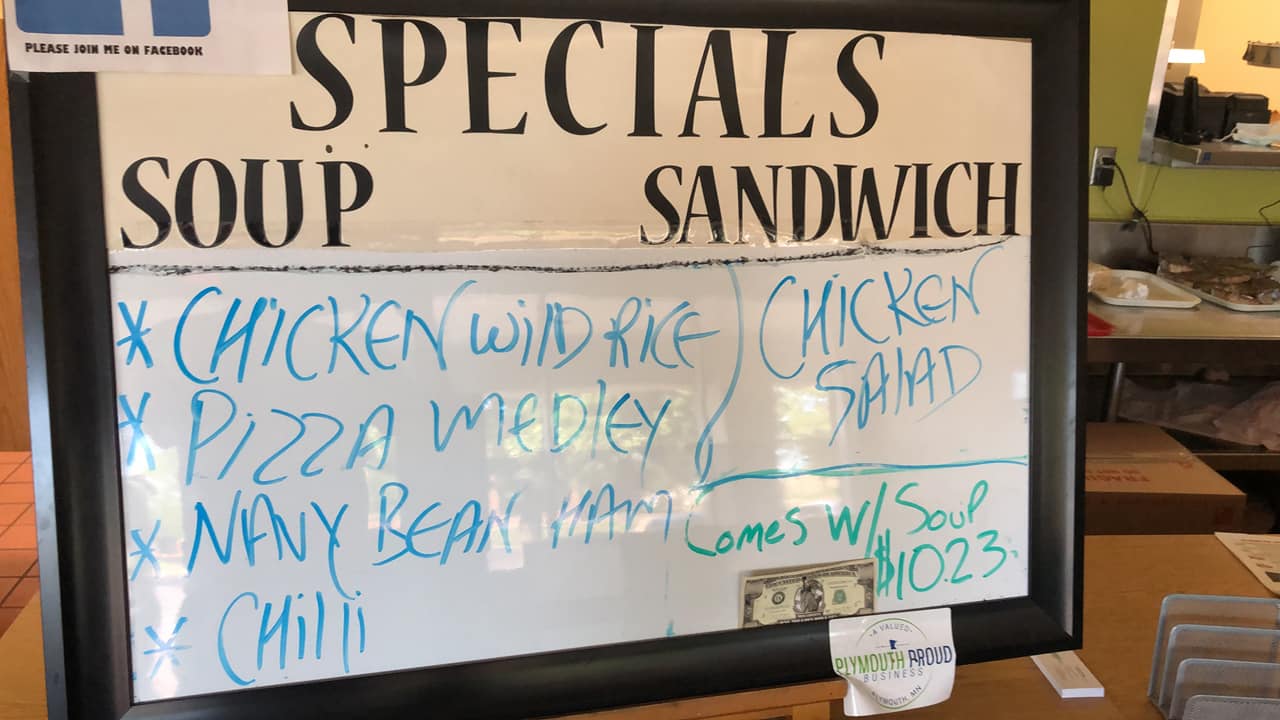 PLEASE JOIN ME ON FACEBOOK
SPECIALS
SOUP
SANDWICH
* CHICKEN WILD RICE
* PIZZA MEDLEY
* NAVY BEAN HAM
* CHILLI
CHICKEN
SALAD
COMES W/ SOUP
$10.23
A VALUED
PLYMOUTH PROUD
BUSINESS
PLYMOUTH, MN
FRAGILE